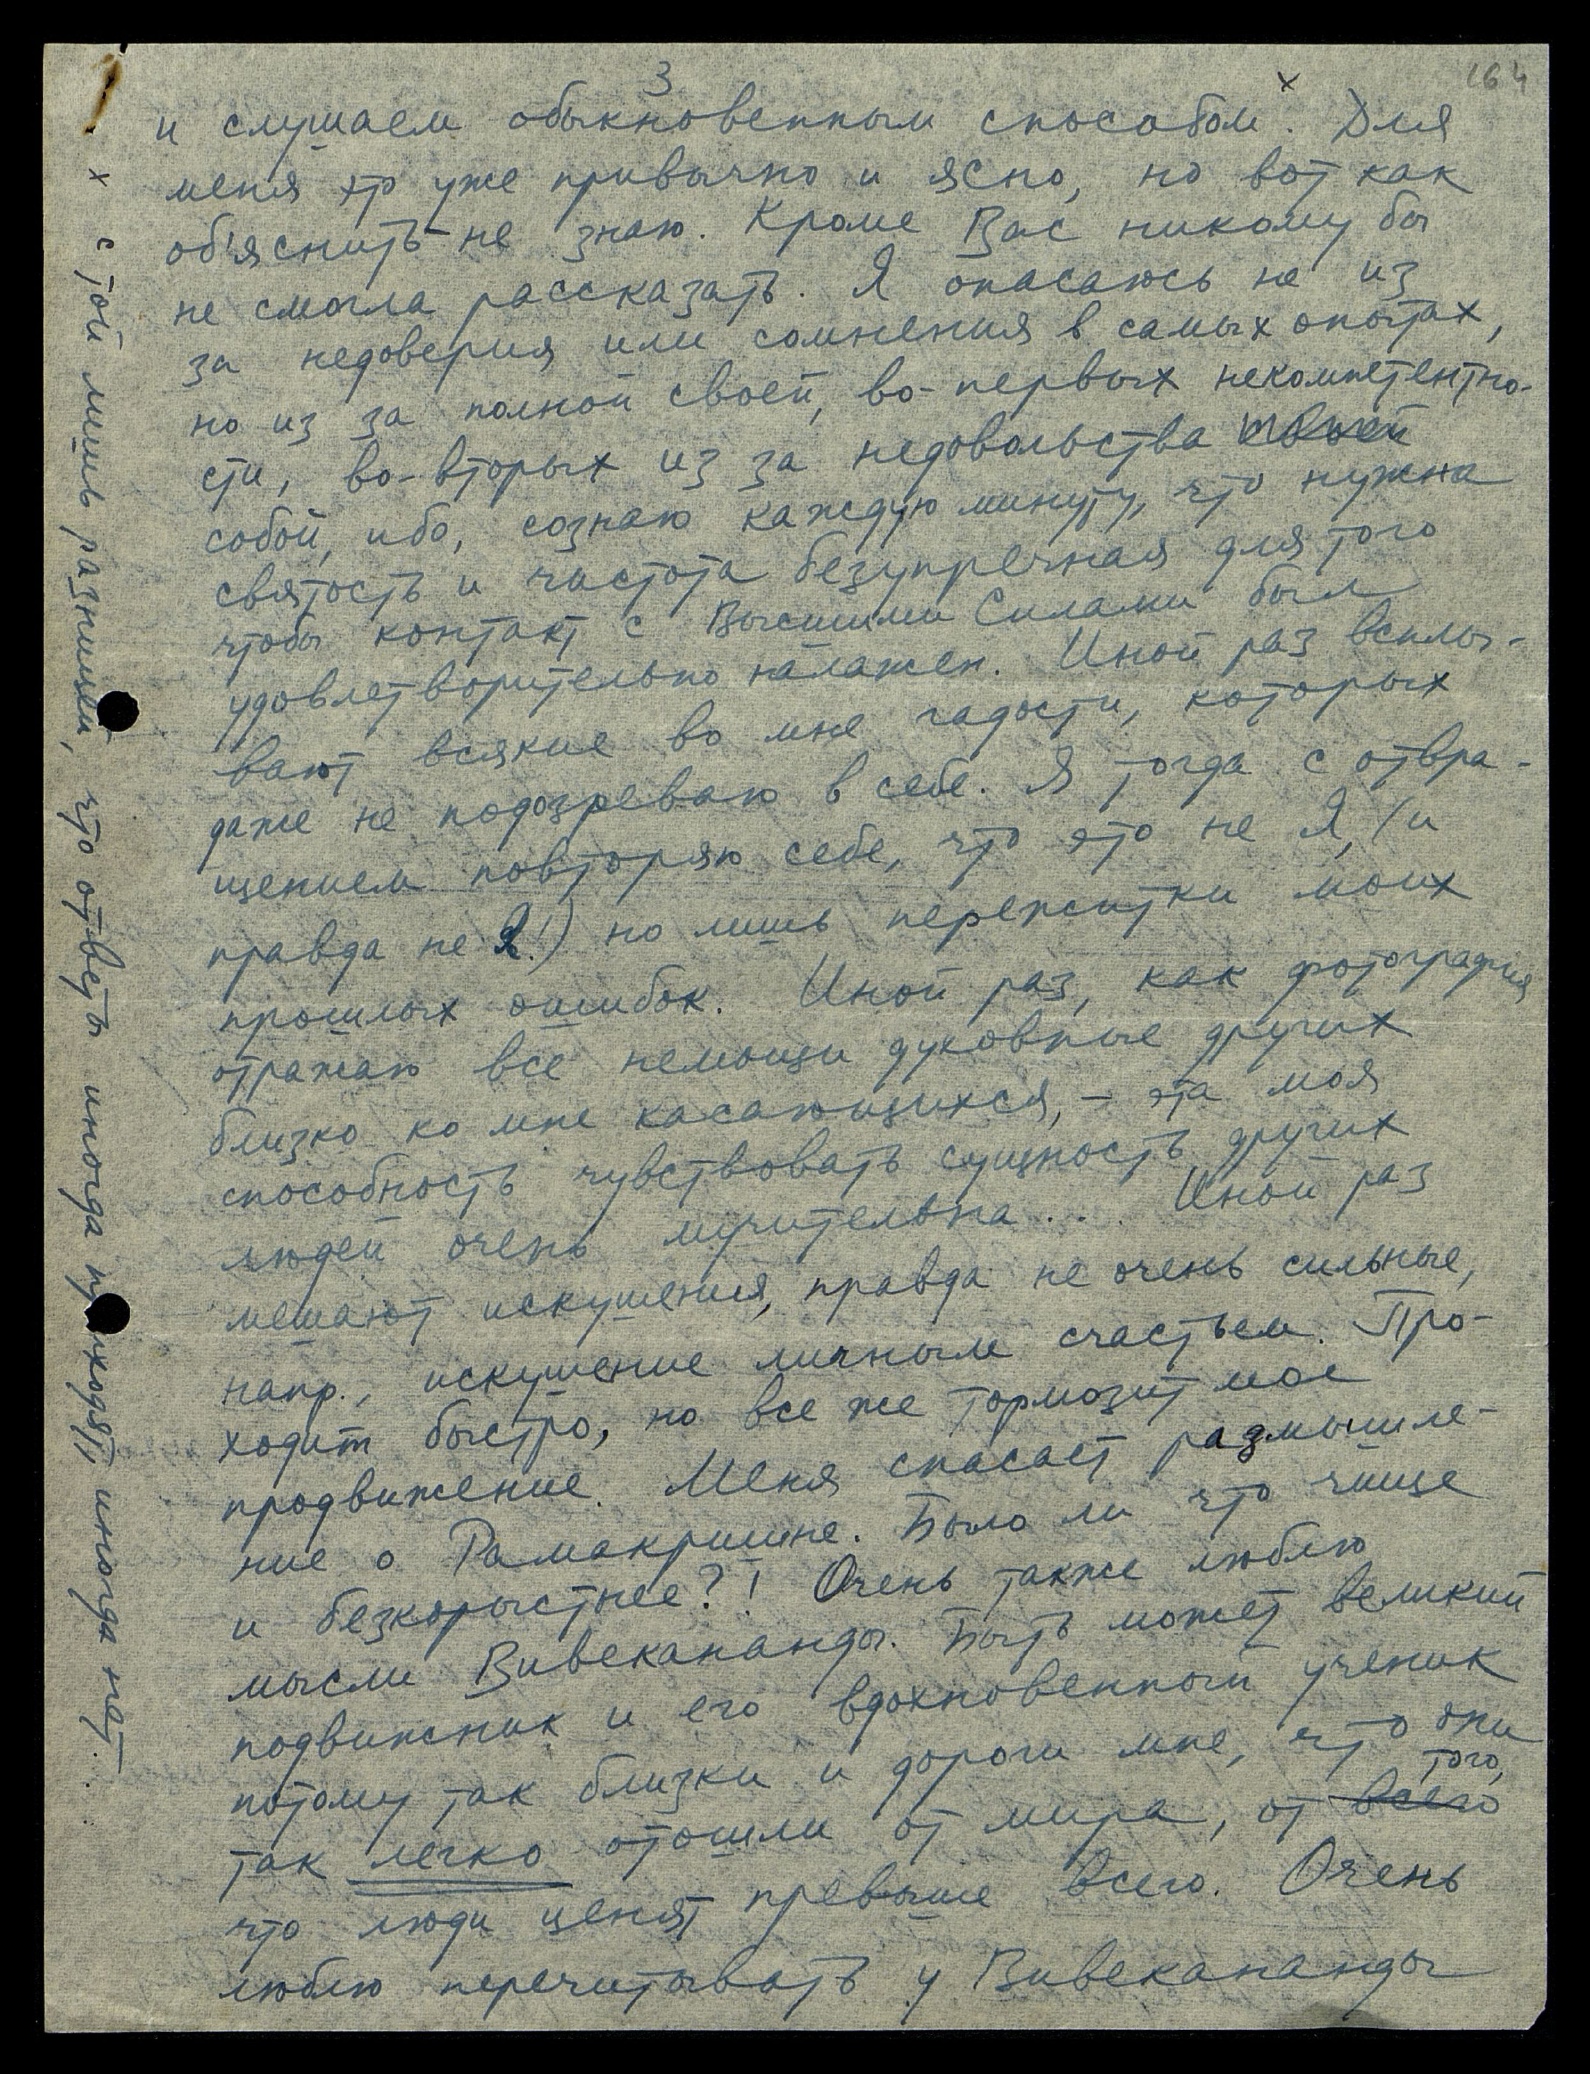 3
164
и слушаем обыкновенным способом.ˣ Для
меня это уже привычно и ясно, но вот как
об'яснить не знаю. Кроме Вас никому бы
не смогла рассказать. Я опасаюсь не из
за недоверия или сомнения в самых опытах,
но из за полной своей, во-первых некомпетентно-
сти, во-вторых из за недовольства
собой, ибо, сознаю каждую минуту, что нужна
святость и чистота безупречная для того
чтобы контакт с Высшими Силами был
удовлетворительно налажен. Иной раз всплы-
вают всякие во мне гадости, которых
даже не подозреваю в себе. Я тогда с отвра-
щением повторяю себе, что это не Я, (и
правда не Я!) но лишь пережитки моих
прошлых ошибок. Иной раз, как фотография
отражаю все немощи духовные других
близко ко мне касающихся, – эта моя
способность чувствовать сущность других
людей очень мучительна.... Иной раз
мешают искушения, правда не очень сильные,
напр., искушение личным счастьем. Про-
ходит быстро, но все же тормозит мое
продвижение. Меня спасает размышле-
ние о Рамакришне. Было ли что чище
и безкорыстнее?! Очень также люблю
мысли Вивекананды. Быть может великий
подвижник и его вдохновенный ученик
потому так близки и дороги мне, что они
так легко отошли от мира, от всего того,
что люди ценят превыше всего. Очень
люблю перечитывать у Вивекананды
х с той лишь разницей, что ответы иногда приходят, иногда нет...